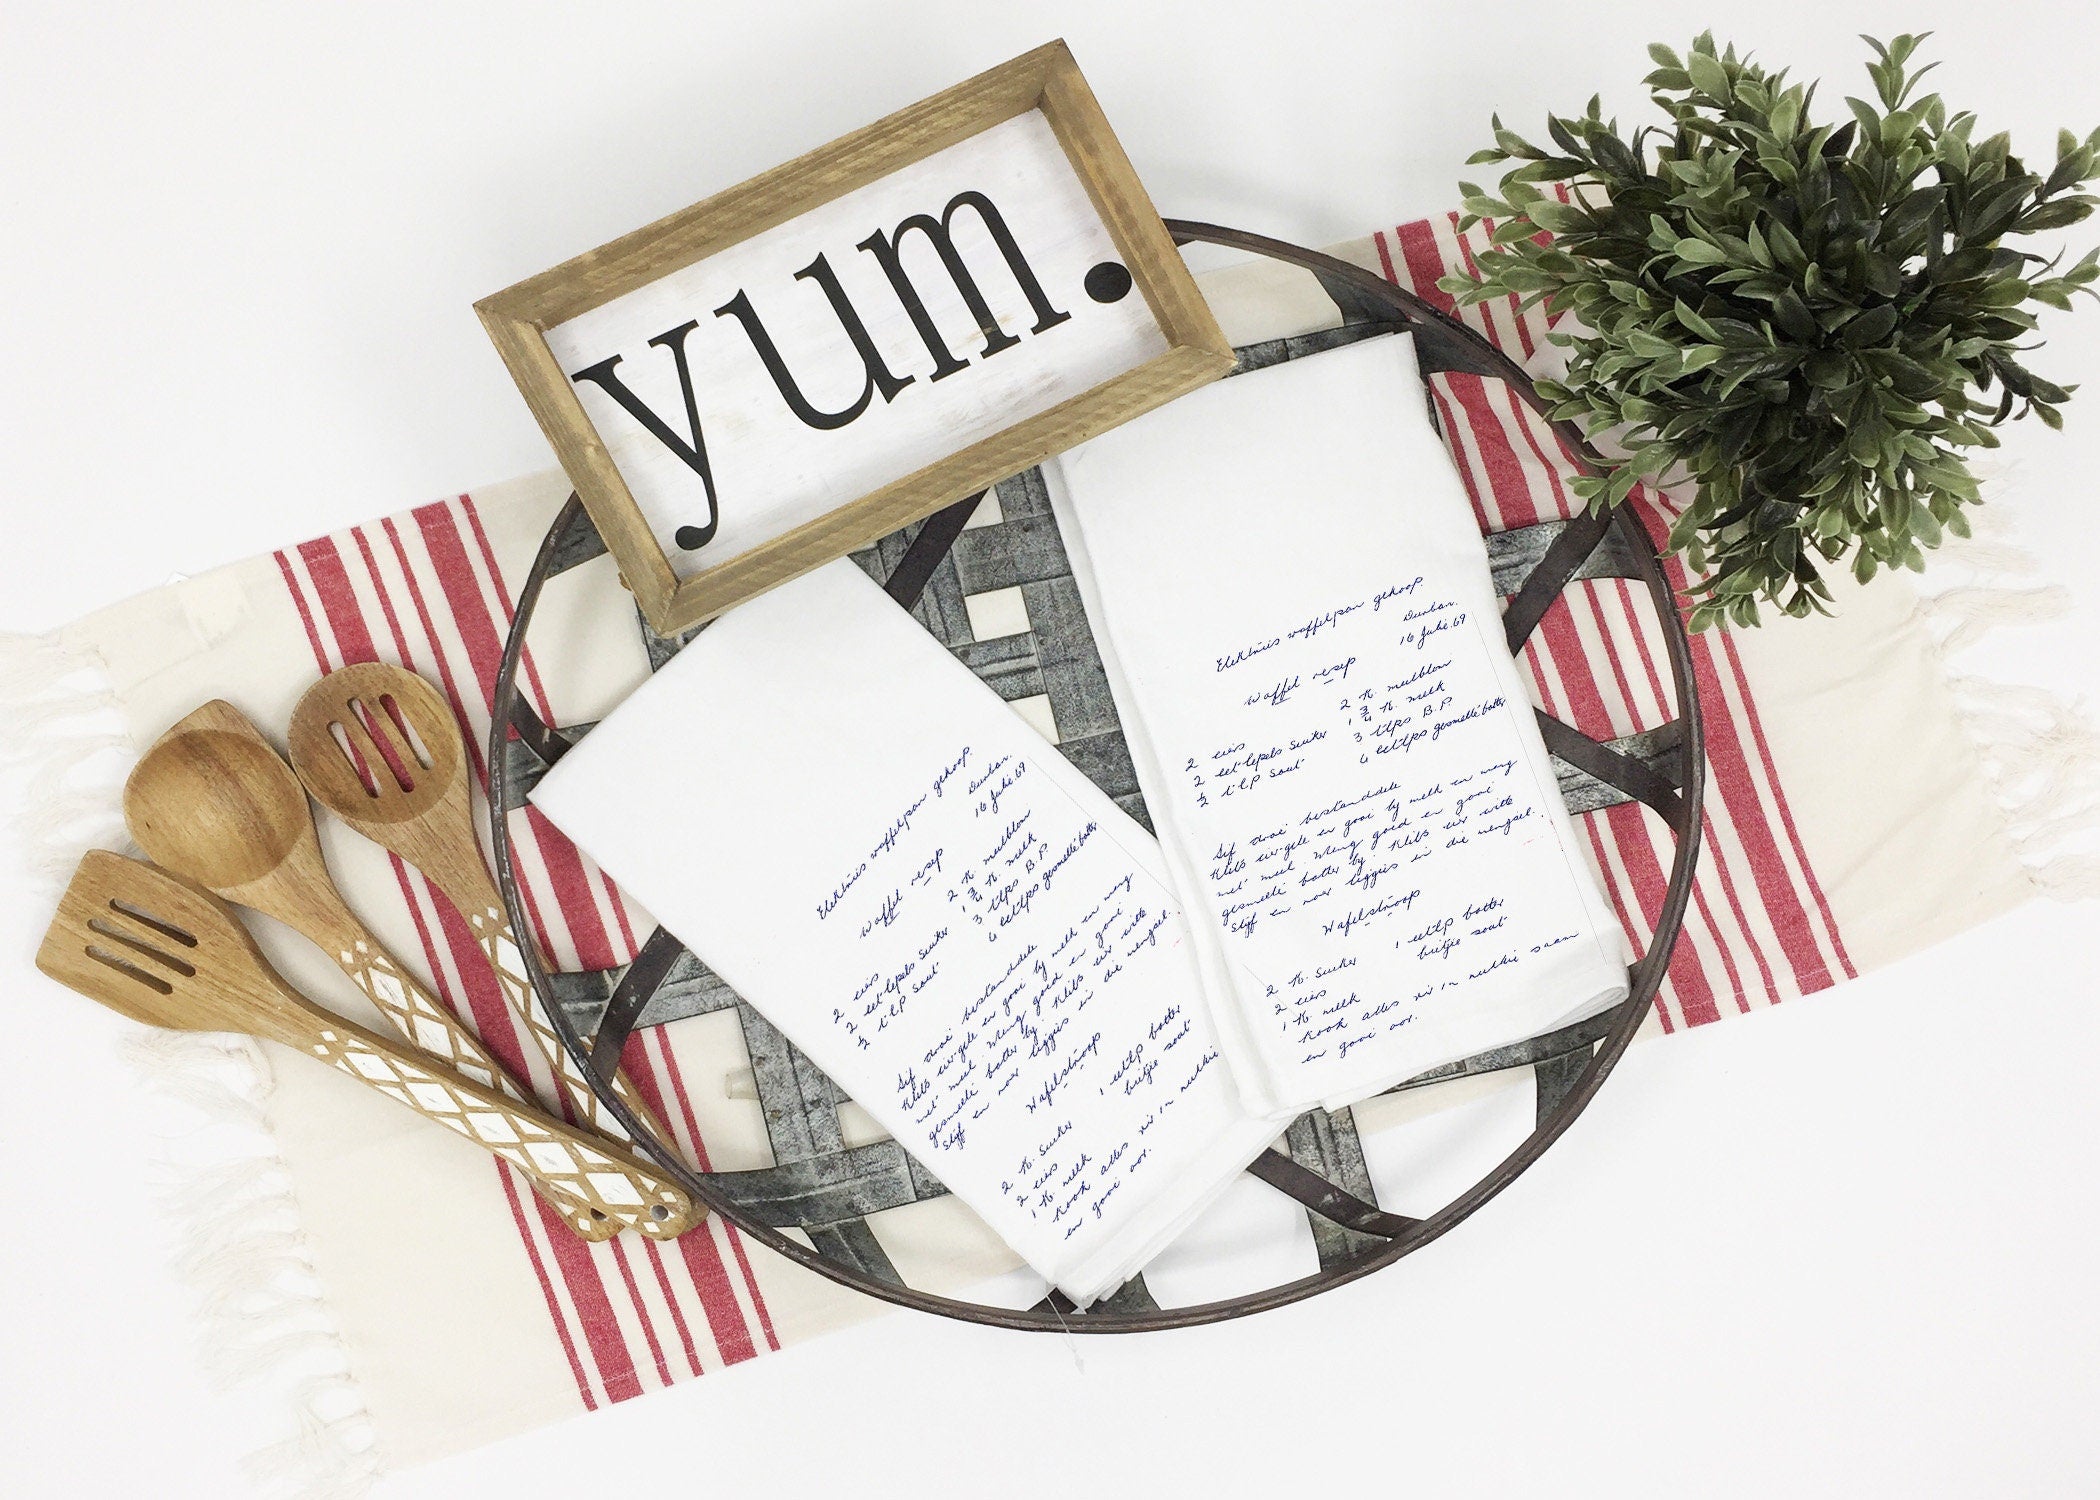 yum.
Elektriese waffelpan gekoop.
Durban.
16 Julie 69
Waffel resep
2 eiers
2 eet-lepels suiker
½ t.l.p sout
2 K. meelblom
1 ¾ K. melk
3 tlps B.P.
6 eetlps gesmelte botter
Sif droë bestanddele
Klits eiergele en gooi by melk en meng
met meel. Meng goed en gooi
gesmelte botter by. Klits eier witte
styf en vou liggies in die mengsel.
Wafelstroop
2 K. suiker
2 eiers
1 K. melk
1 eetlp botter
bietjie sout
Kook alles
en gooi oor.
Elektriese waffelpan gekoop.
Durban.
16 Julie 69
Waffel resep
2 eiers
2 eet-lepels suiker
½ t.l.p sout
2 K. meelblom
1 ¾ K. melk
3 tlps B.P.
6 eetlps gesmelte botter
Sif droë bestanddele
Klits eiergele en gooi by melk en meng
met meel. Meng goed en gooi
gesmelte botter by. Klits eier witte
styf en vou liggies in die mengsel.
Wafelstroop
2 K. suiker
2 eiers
1 K. melk
1 eetlp botter
bietjie sout
Kook alles saam
en gooi oor.